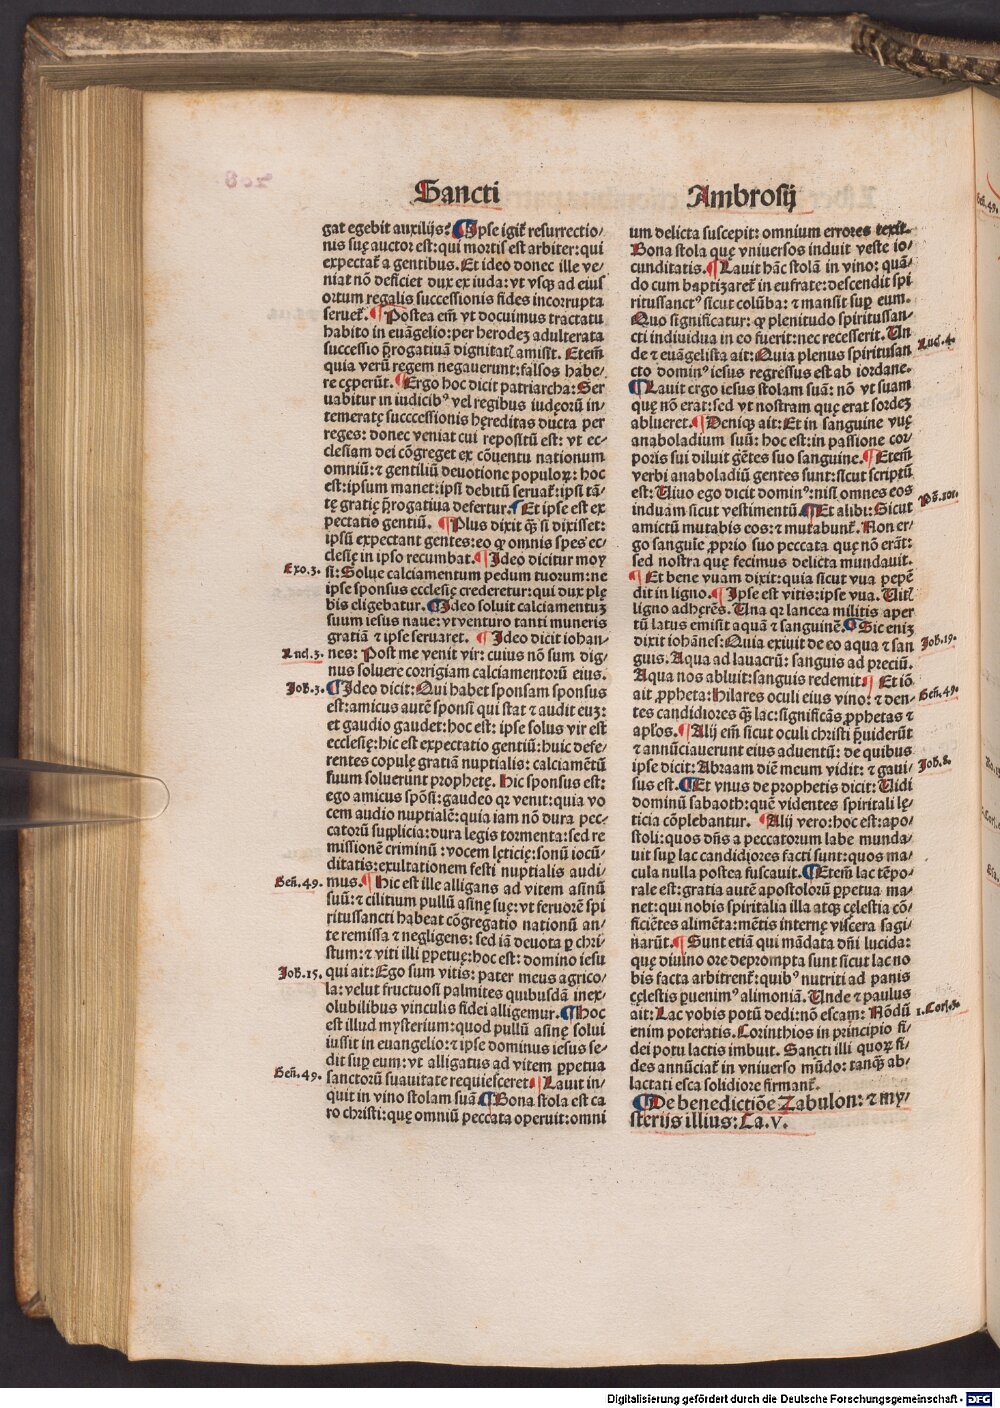 Sancti
Ambrosij
gat egebit auxilijs? ¶ Ipse igit᷑ resurrectio⸗
nis suę auctor est: qui mortis est arbiter: qui
expectat᷑ a gentibus. Et ideo donec ille ve⸗
niat nō deficiet dux ex iuda: vt vsqȝ ad eius
ortum regalis successionis fides incorrupta
seruet᷑. ¶ Postea em̄ vt docuimus tractatu
habito in euāgelio: per herodeȝ adulterata
successio p̄rogatiuā dignitatꝭ amisit. Etem̄
quia verū regem negauerunt: falsos habe⸗
re cęperūt. ¶ Ergo hoc dicit patriarcha: Ser
uabitur in iudicibꝰ vel regibus iudęorū in⸗
temeratę succcessionis hęreditas ducta per
reges: donec veniat cui repositū est: vt ec⸗
clesiam dei cōgreget ex cōuentu nationum
omniū: ⁊ gentiliū deuotione populoꝝ: hoc
est: ipsum manet: ipsi debitū seruat᷑: ipsi tā⸗
tę gratię p̄rogatiua defertur. ¶ Et ipse est ex
pectatis gentiū. ¶ Plus dixit q̄ꝫ si dixisset:
ipsū expectant gentes: eo ꝙ omnis spes ec⸗
clesię in ipso recumbat. ¶ Ideo dicitur moy
Exo.3. si: Solue calciamentum pedum tuorum: ne
ipse sponsus ecclesię crederetur: qui dux ple
bis eligebatur. ¶ Ideo soluit calciamentuȝ
suum iesus naue: vt venturo tanti muneris
gratiā ⁊ ipse seruaret. ¶ Ideo dicit iohan⸗
Luc.3. nes: Post me venit vir: cuius nō sum dig⸗
nus soluere corrigiam calciamentorū eius.
Joh̄.3. ¶ Ideo dicit: Qui habet sponsam sponsus
est: amicus autē sponsi qui stat ⁊ audit euȝ:
et gaudio gaudet: hoc est: ipse solus vir est
ecclesię: hic est expectatio gentiū: huic defe⸗
rentes copulę gratiā nuptialis: calciamētū
suum soluerunt prophetę. Hic sponsus est:
ego amicus spōsi: gaudeo qꝛ venit: quia vo
cem audio nuptialē: quia iam nō dura pec⸗
catorū supplicia: dura legis tormenta: sed re
missionē criminū: vocem lęticię: sonū iocū⸗
ditatis: exultationem festi nuptialis audi⸗
Gen̄.49. mus. ¶ Hic est ille alligans ad vitem asinū
suū: ⁊ cilitium pullū asinę suę: vt feruorē spi
ritussancti habeat cōgregatio nationū an⸗
te remissa ⁊ negligens: sed iā deuota ꝑ chri⸗
stum: ⁊ viti illi ꝑpetuę: hoc est: domino iesu
Joh̄.15. qui ait: Ego sum vitis: pater meus agrico⸗
la: velut fructuosi palmites quibusdā inex⸗
olubilibus vinculis fidei alligemur. ¶ Hoc
est illud mysterium: quod pullū asinę solui
iussit in euangelio: ⁊ ipse dominus iesus se⸗
dit suꝑ eum: vt alligatus ad vitem ꝑpetua
Gen̄.49. sanctorū suauitate requiesceret. ¶ Lauit in⸗
quit in vino stolam suā. ¶ Bona stola est ca
ro christi: quę omniū peccata operuit: omni
um delicta suscepit: omnium errores texit.
Bona stola quę vniuersos induit veste io⸗
cunditatis. ¶ Lauit hāc stolā in vino: quā⸗
do cum baptizaret᷑ in eufrate: descendit spi
ritussanctꝰ sicut colūba: ⁊ mansit suꝑ eum.
Quo significatur: ꝙ plenitudo spiritussan⸗
cti indiuidua in eo fuerit: nec recesserit. Un
de ⁊ euāgelista ait: Quia plenus spiritusan Luc.4.
cto dominꝰ iesus regressus est ab iordane.
¶ Lauit ergo iesus stolam suā: nō vt suam
quę nō erat: sed vt nostram quę erat sordeȝ
ablueret. ¶ Deniqȝ ait: Et in sanguine vuę
anaboladium suū: hoc est: in passione cor⸗
poris sui diluit gētes suo sanguine. ¶ Etem̄
verbi anaboladiū gentes sunt: sicut scriptū
est: Uiuo ego dicit dominꝰ: nisi omnes eos Ps̄.101.
induam sicut vestimentū. ¶ Et alibi: Sicut
amictū mutabis eos: ⁊ mutabunt᷑. Non er⸗
go sanguīe ꝓprio suo peccata quę nō erāt:
sed nostra quę fecimus delicta mundauit.
¶ Et bene vuam dixit: quia sicut vua pepē
dit in ligno. ¶ Ipse est vitis: ipse vua. Uitꝭ
ligno adherēs. Una qꝛ lancea militis aper
tū latus emisit aquā ⁊ sanguinē. ¶ Sic eniȝ
dixit iohānes: Quia exiuit de eo aqua ⁊ san Joh̄.19.
guis. Aqua ad lauacrū: sanguis ad preciū.
Aqua nos abluit: sanguis redemit. ¶ Et iō
ait ꝓpheta: Hilares oculi eius vino: ⁊ den⸗ Gen̄.49.
tes candidiores q̄ꝫ lac: significās ꝓphetas ⁊
aplōs. ¶ Alij em̄ sicut oculi christi p̄uiderūt
⁊ annūciauerunt eius aduentū: de quibus
ipse dicit: Abraam diē meum vidit: ⁊ gaui⸗ Joh̄.8.
sus est. ¶ Et vnus de prophetis dicit: Uidi
dominū sabaoth: quē videntes spiritali lę⸗
ticia cōplebantur. ¶ Alij vero: hoc est: apo⸗
stoli: quos dn̄s a peccatorum labe munda⸗
uit suꝑ lac candidiores facti sunt: quos ma⸗
cula nulla postea fuscauit. ¶ Etem̄ lac tēpo⸗
rale est: gratia autē apostolorū ꝑpetua ma⸗
net: qui nobis spiritalia illa atqȝ cęlestia cō⸗
ficiētes alimēta: mētis internę viscera sagi⸗
narūt. ¶ Sunt etiā qui mādata dn̄i lucida:
quę diuino ore deprompta sunt sicut lac no
bis facta arbitrent᷑: quibꝰ nutriti ad panis
cęlestis ꝑuenimꝰ alimoniā. Unde ⁊ paulus
ait: Lac vobis potū dedi: nō escam: Nōdū 1.Cor.3.
enim poteratis. Corinthios in principio fi⸗
dei potu lactis imbuit. Sancti illi quoꝝ fi⸗
des annūciat᷑ in vniuerso mūdo: tanq̄ꝫ ab⸗
lactati esca solidiore firmant᷑.
¶ De benedictiōe Zabulon: ⁊ my⸗
sterijs illius: Ca.v.
Digitalisierung gefördert durch die Deutsche Forschungsgemeinschaft - DFG